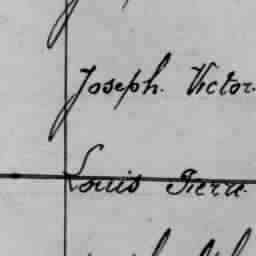 Joseph. Victor.
Louis Pierre.